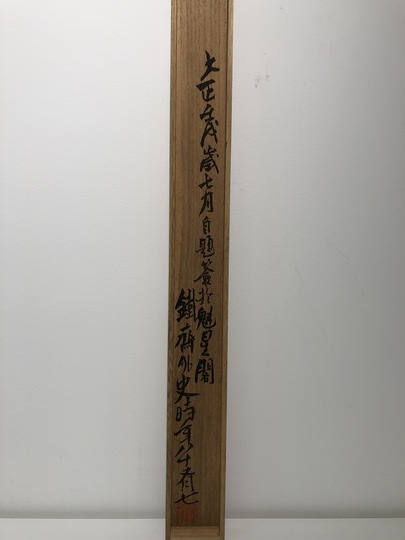 大正壬戌嵗七月自題簽於魁星閣
鐵齋外史時年八十有七